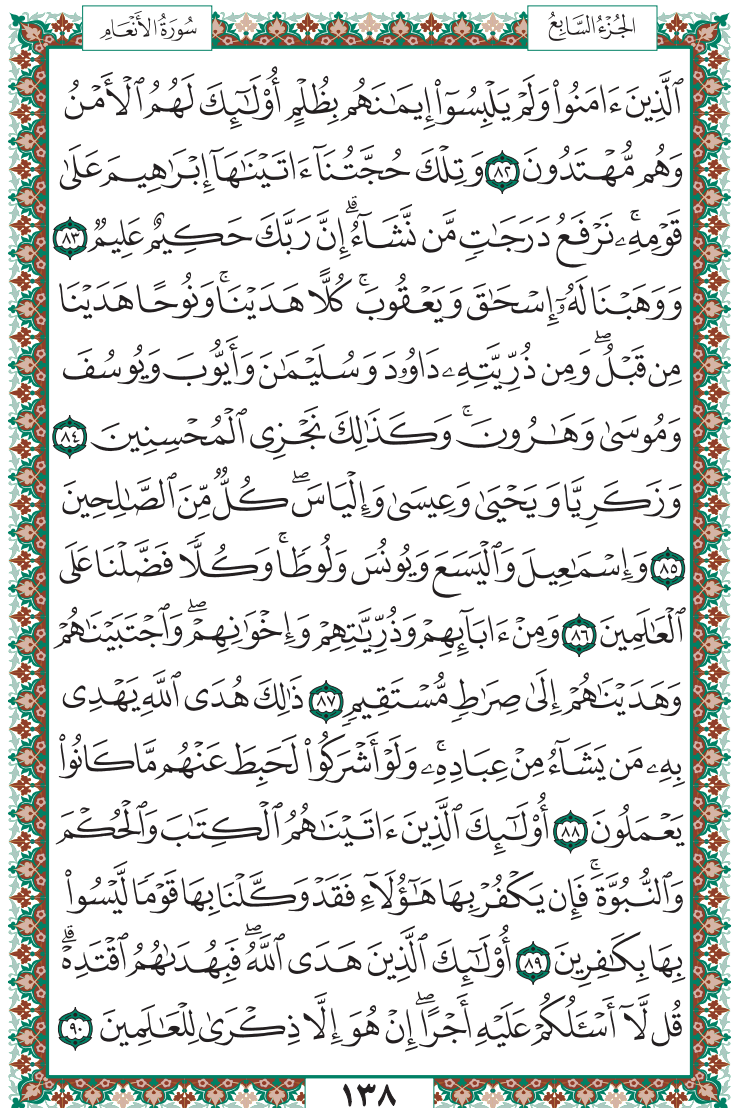 الجُزْءُ السَّابِعُ
سُورَةُ الأَنْعَامِ
ٱلَّذِينَ ءَامَنُوا۟ وَلَمْ يَلْبِسُوٓا۟ إِيمَـٰنَهُم بِظُلْمٍ أُو۟لَـٰٓئِكَ لَهُمُ ٱلْأَمْنُ
وَهُم مُّهْتَدُونَ ٨٢ وَتِلْكَ حُجَّتُنَآ ءَاتَيْنَـٰهَآ إِبْرَٰهِيمَ عَلَىٰ
قَوْمِهِۦ ۚ نَرْفَعُ دَرَجَـٰتٍ مَّن نَّشَآءُ ۗ إِنَّ رَبَّكَ حَكِيمٌ عَلِيمٌ ٨٣
وَوَهَبْنَا لَهُۥٓ إِسْحَـٰقَ وَيَعْقُوبَ ۚ كُلًّا هَدَيْنَا ۚ وَنُوحًا هَدَيْنَا
مِن قَبْلُ ۖ وَمِن ذُرِّيَّتِهِۦ دَاوُۥدَ وَسُلَيْمَـٰنَ وَأَيُّوبَ وَيُوسُفَ
وَمُوسَىٰ وَهَـٰرُونَ ۚ وَكَذَٰلِكَ نَجْزِى ٱلْمُحْسِنِينَ ٨٤
وَزَكَرِيَّا وَيَحْيَىٰ وَعِيسَىٰ وَإِلْيَاسَ ۖ كُلٌّ مِّنَ ٱلصَّـٰلِحِينَ
٨٥ وَإِسْمَـٰعِيلَ وَٱلْيَسَعَ وَيُونُسَ وَلُوطًا ۚ وَكُلًّا فَضَّلْنَا عَلَى
ٱلْعَـٰلَمِينَ ٨٦ وَمِنْ ءَابَآئِهِمْ وَذُرِّيَّـٰتِهِمْ وَإِخْوَٰنِهِمْ ۖ وَٱجْتَبَيْنَـٰهُمْ
وَهَدَيْنَـٰهُمْ إِلَىٰ صِرَٰطٍ مُّسْتَقِيمٍ ٨٧ ذَٰلِكَ هُدَى ٱللَّهِ يَهْدِى
بِهِۦ مَن يَشَآءُ مِنْ عِبَادِهِۦ ۚ وَلَوْ أَشْرَكُوا۟ لَحَبِطَ عَنْهُم مَّا كَانُوا۟
يَعْمَلُونَ ٨٨ أُو۟لَـٰٓئِكَ ٱلَّذِينَ ءَاتَيْنَـٰهُمُ ٱلْكِتَـٰبَ وَٱلْحُكْمَ
وَٱلنُّبُوَّةَ ۚ فَإِن يَكْفُرْ بِهَا هَـٰٓؤُلَآءِ فَقَدْ وَكَّلْنَا بِهَا قَوْمًا لَّيْسُوا۟
بِهَا بِكَـٰفِرِينَ ٨٩ أُو۟لَـٰٓئِكَ ٱلَّذِينَ هَدَى ٱللَّهُ ۖ فَبِهُدَىٰهُمُ ٱقْتَدِهْ ۗ
قُل لَّآ أَسْـَٔلُكُمْ عَلَيْهِ أَجْرًا ۖ إِنْ هُوَ إِلَّا ذِكْرَىٰ لِلْعَـٰلَمِينَ ٩٠
١٣٨